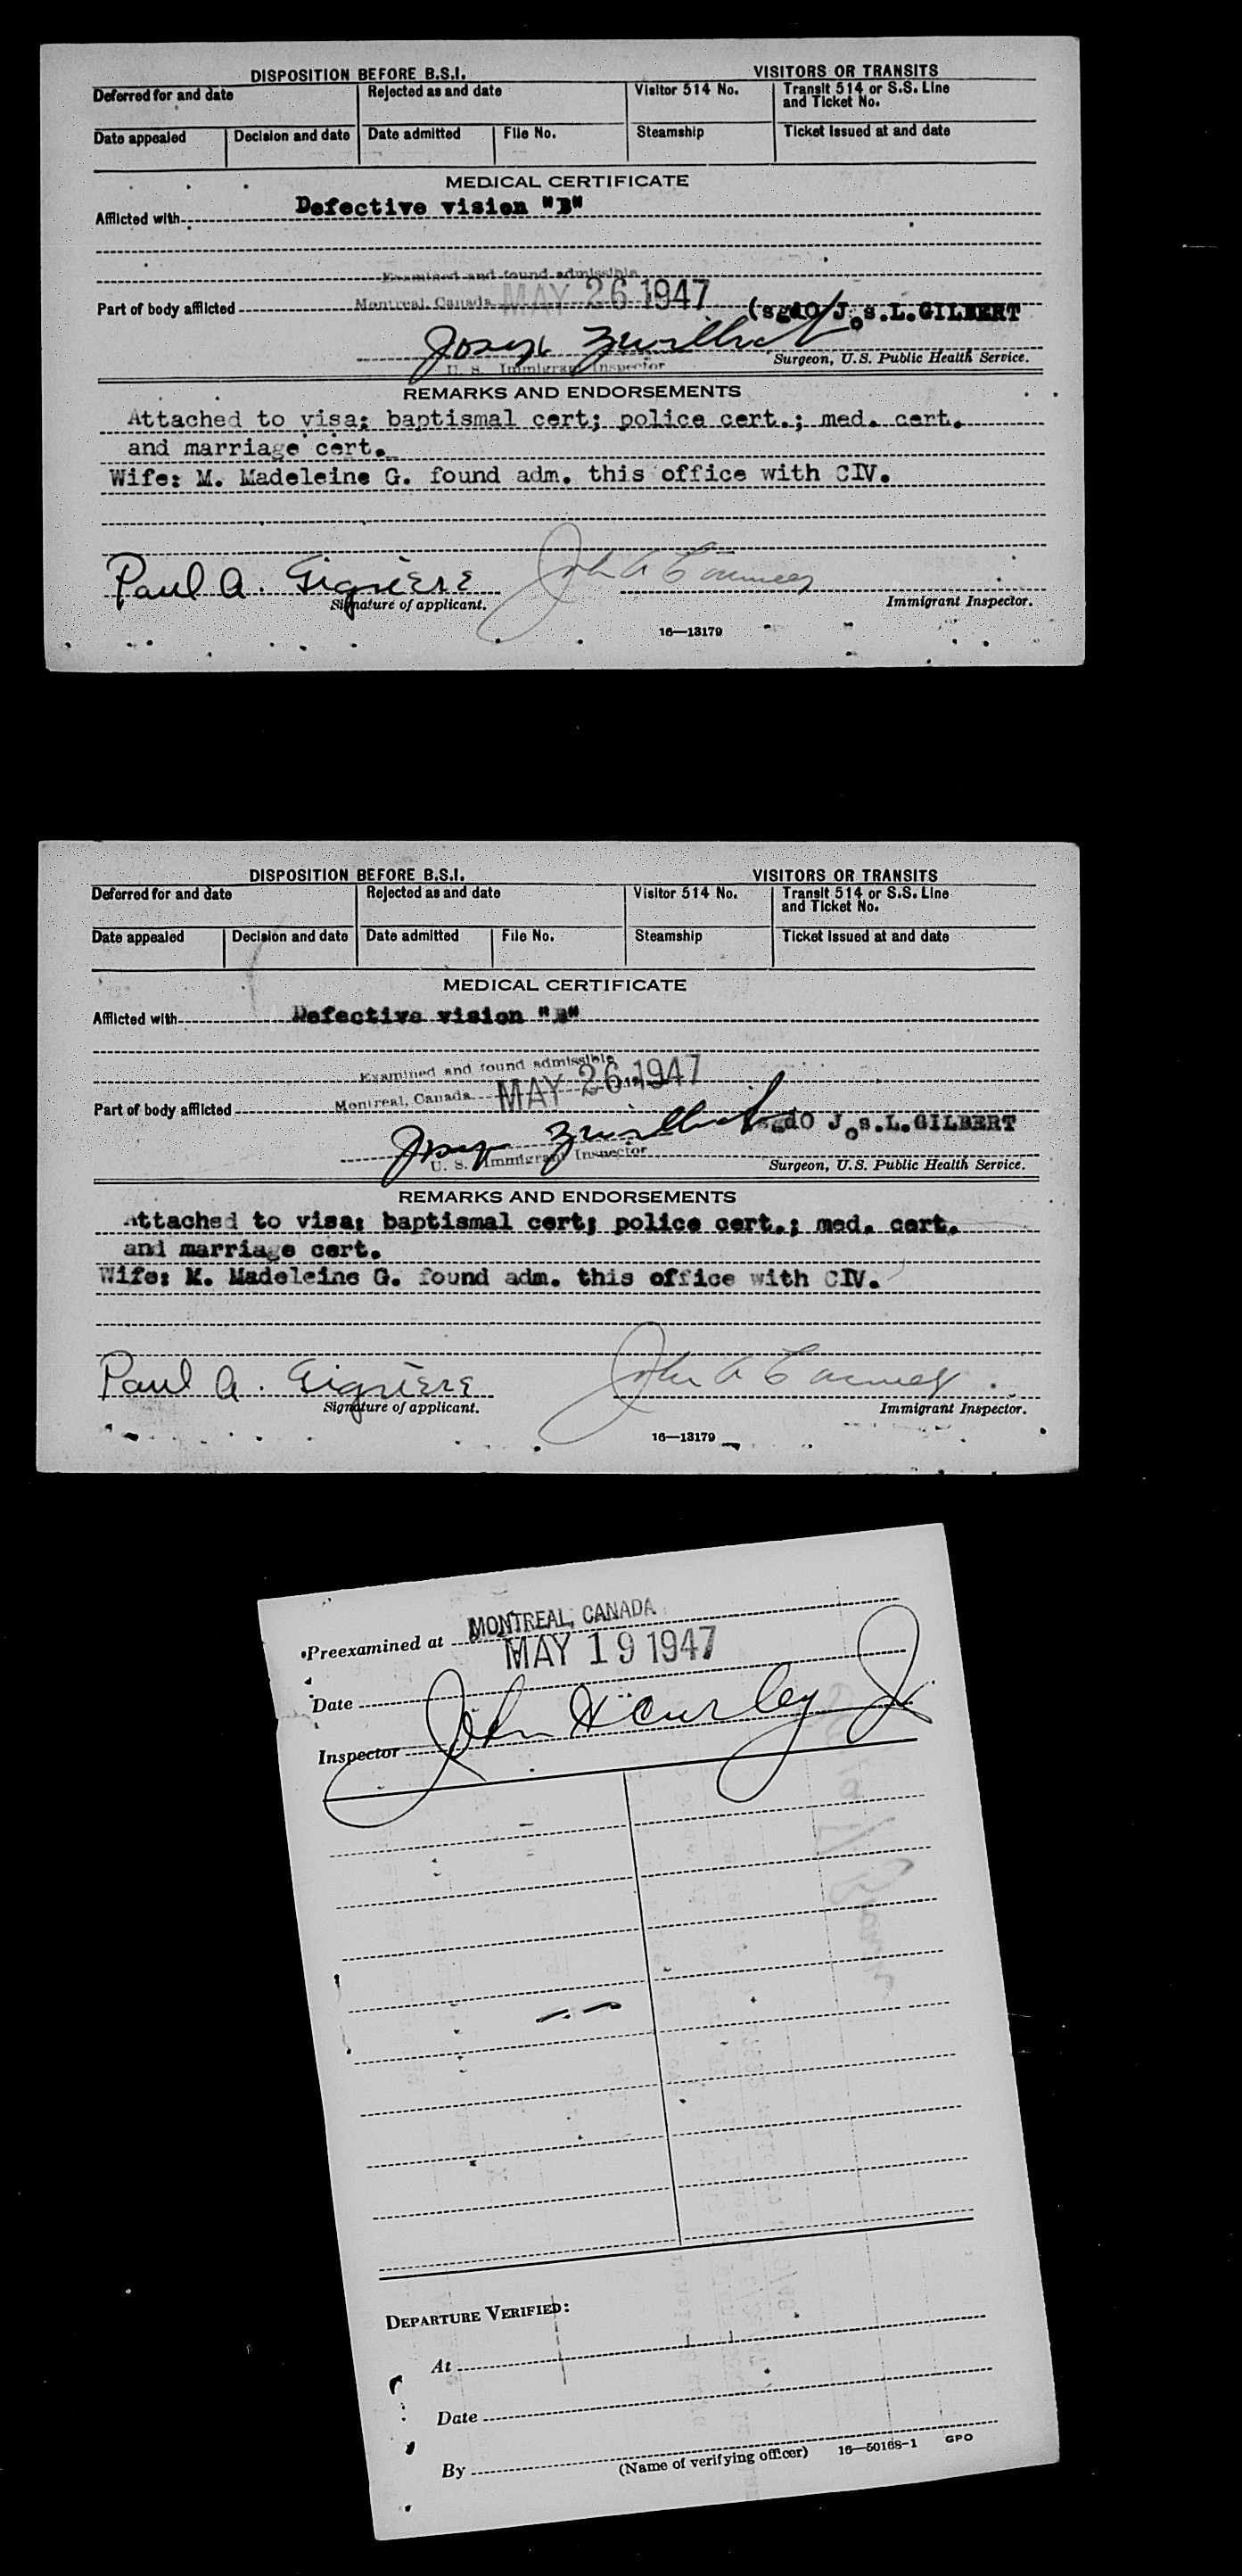 DISPOSITION BEFORE B.S.I. VISITORS OR TRANSITS
Deferred for and date Rejected as and date Visitor 514 No. Transit 514 or S.S. Line and Ticket No.
Date appealed Decision and date Date admitted File No. Steamship Ticket issued at and date
MEDICAL CERTIFICATE
Afflicted with Defective vision "B"
Examined and found admissible
Part of body afflicted Montreal, Canada MAY 26 1947 (sgdO J.s.L.GILBERT
U. S. Immigrant Inspector Surgeon, U.S. Public Health Service.
REMARKS AND ENDORSEMENTS
Attached to visa; baptismal cert; police cert.; med. cert.
and marriage cert.
Wife: M. Madeleine G. found adm. this office with CIV.
Paul A. Giguère John A
Signature of applicant. Immigrant Inspector.
16—13179
DISPOSITION BEFORE B.S.I. VISITORS OR TRANSITS
Deferred for and date Rejected as and date Visitor 514 No. Transit 514 or S.S. Line and Ticket No.
Date appealed Decision and date Date admitted File No. Steamship Ticket issued at and date
MEDICAL CERTIFICATE
Afflicted with Defective vision "B"
Examined and found admissible
Montreal, Canada MAY 26 1947
Part of body afflicted sgdO J.s.L.GILBERT
U. S. Immigrant Inspector Surgeon, U.S. Public Health Service.
REMARKS AND ENDORSEMENTS
Attached to visa; baptismal cert; police cert.; med. cert.
and marriage cert.
Wife: M. Madeleine G. found adm. this office with CIV.
Paul A. Giguère John A
Signature of applicant. Immigrant Inspector.
16—13179
Preexamined at MONTREAL, CANADA
MAY 19 1947
Date
Inspector John H Curley Jr
DEPARTURE VERIFIED:
At
Date
By
(Name of verifying officer) 16—50168-1 GPO